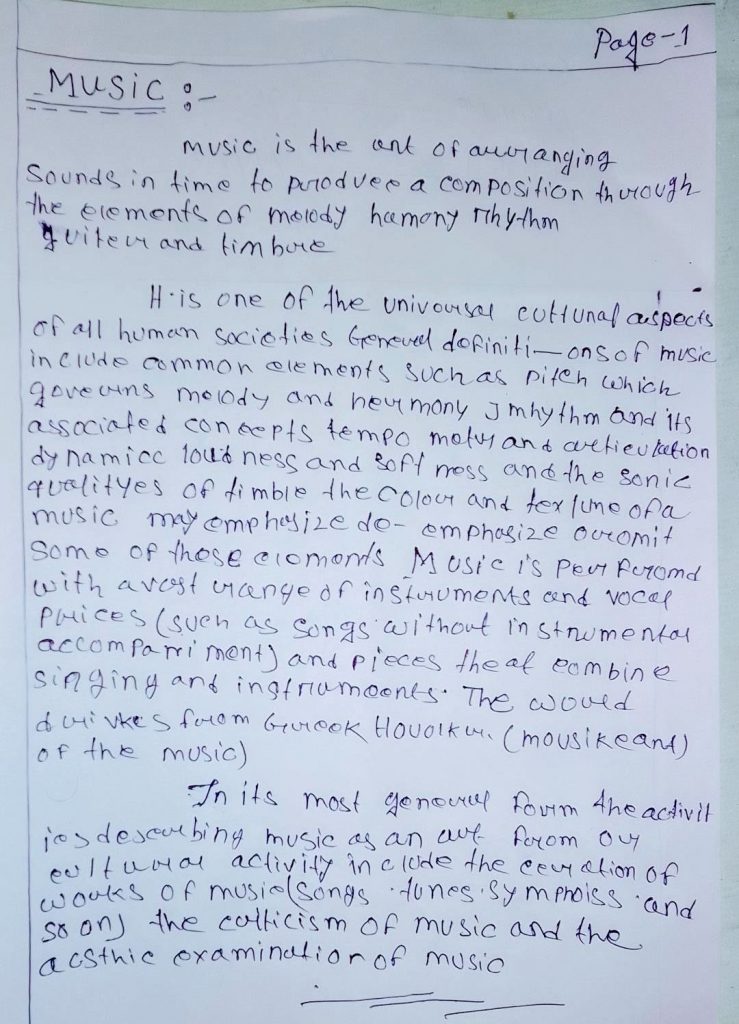 Page-1
Music :-
music is the art of arranging
Sounds in time to produce a composition through
the elements of melody harmony rhythm
and timbre
It is one of the universal cultural aspects
of all human societies General definiti-ons of music
include common elements such as pitch which
governs melody and harmony rhythm and its
associated concepts tempo meter and articulation
dynamicc loudness and soft ness and the sonic
qualityes of timbre the colour and texture of a
music may emphasize de- emphasize or omit
Some of these elements Music is performd
with a vast range of instruments and vocal
(such as songs without instrumental
accompaniment) and pieces that combine
singing and instruments. The
from Greek (mousike and)
of the music)
In its most general form the activit
ies describing music as an art form or
cultural activity include the creation of
works of music (songs . tunes . Symphoiss . and
so on) the criticism of music and the
examination of music